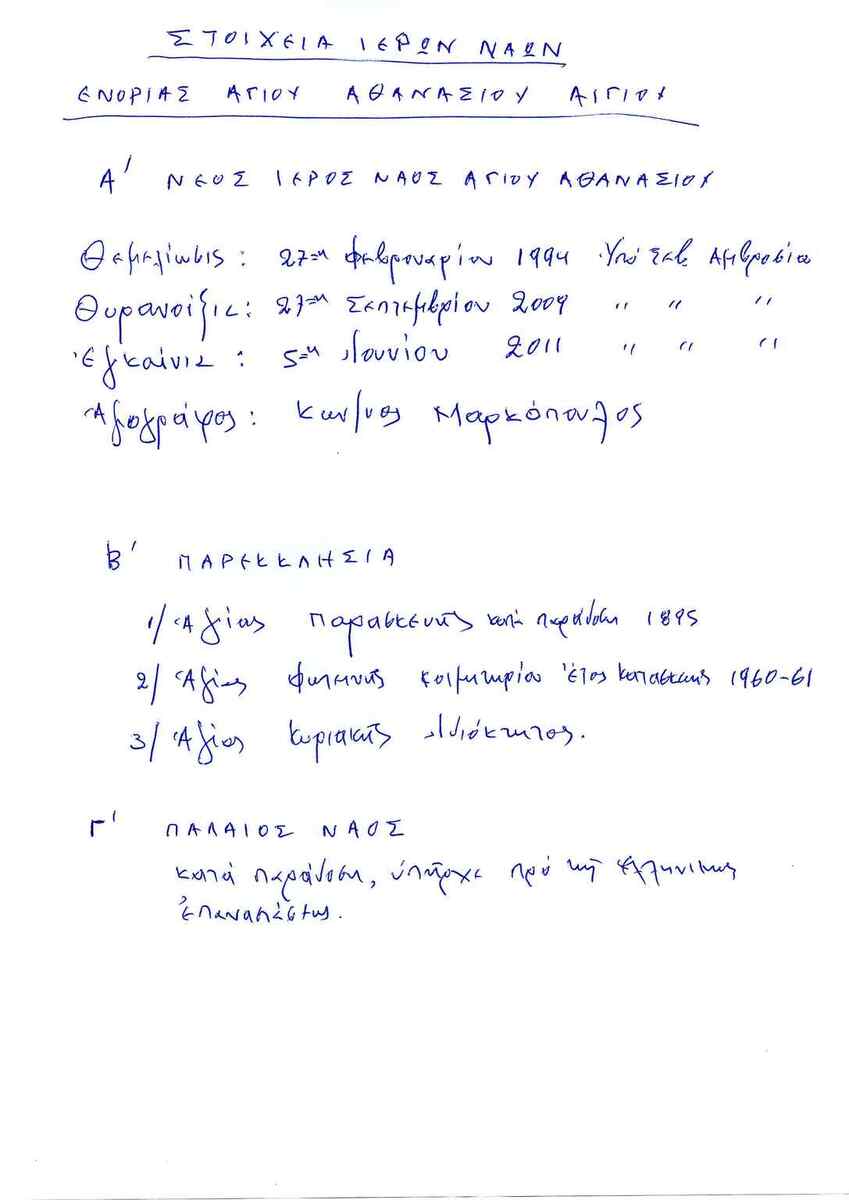 ΣΤΟΙΧΕΙΑ ΙΕΡΩΝ ΝΑΩΝ
ΕΝΟΡΙΑΣ ΑΓΙΟΥ ΑΘΑΝΑΣΙΟΥ ΑΙΓΙΟΥ
Α' ΝΕΟΣ ΙΕΡΟΣ ΝΑΟΣ ΑΓΙΟΥ ΑΘΑΝΑΣΙΟΥ
Θεμελίωσις: 27η Φεβρουαρίου 1994 Ὑπό Σεβ Ἀμβροσίου
Θυρανοίξις: 27η Σεπτεμβρίου 2009 " " "
Ἐγκαίνια: 5η Ἰουνίου 2011 " " "
Ἁγιογράφος: Κων/νος Μαρκόπουλος
Β' ΠΑΡΕΚΚΛΗΣΙΑ
1/ Ἁγίας Παρασκευῆς κατά παράδοση 1895
2/ Ἁγίας Φωτεινῆς κοιμητηρίου Ἔτος κατασκευῆς 1960-61
3/ Ἁγίας Κυριακῆς Ἰδιόκτητος.
Γ' ΠΑΛΑΙΟΣ ΝΑΟΣ
κατά παράδοση, ὑπῆρχε πρό τῆς Ἑλληνικῆς
Ἐπαναστάσεως.